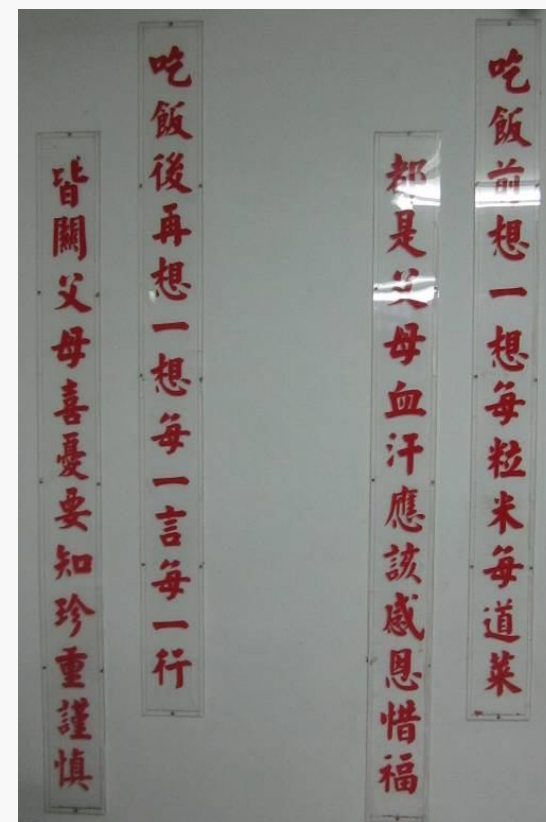 吃飯前想一想每粒米每道菜
都是父母血汗應該感恩惜福
吃飯後再想一想每一言每一行
皆關父母喜憂要知珍重謹慎